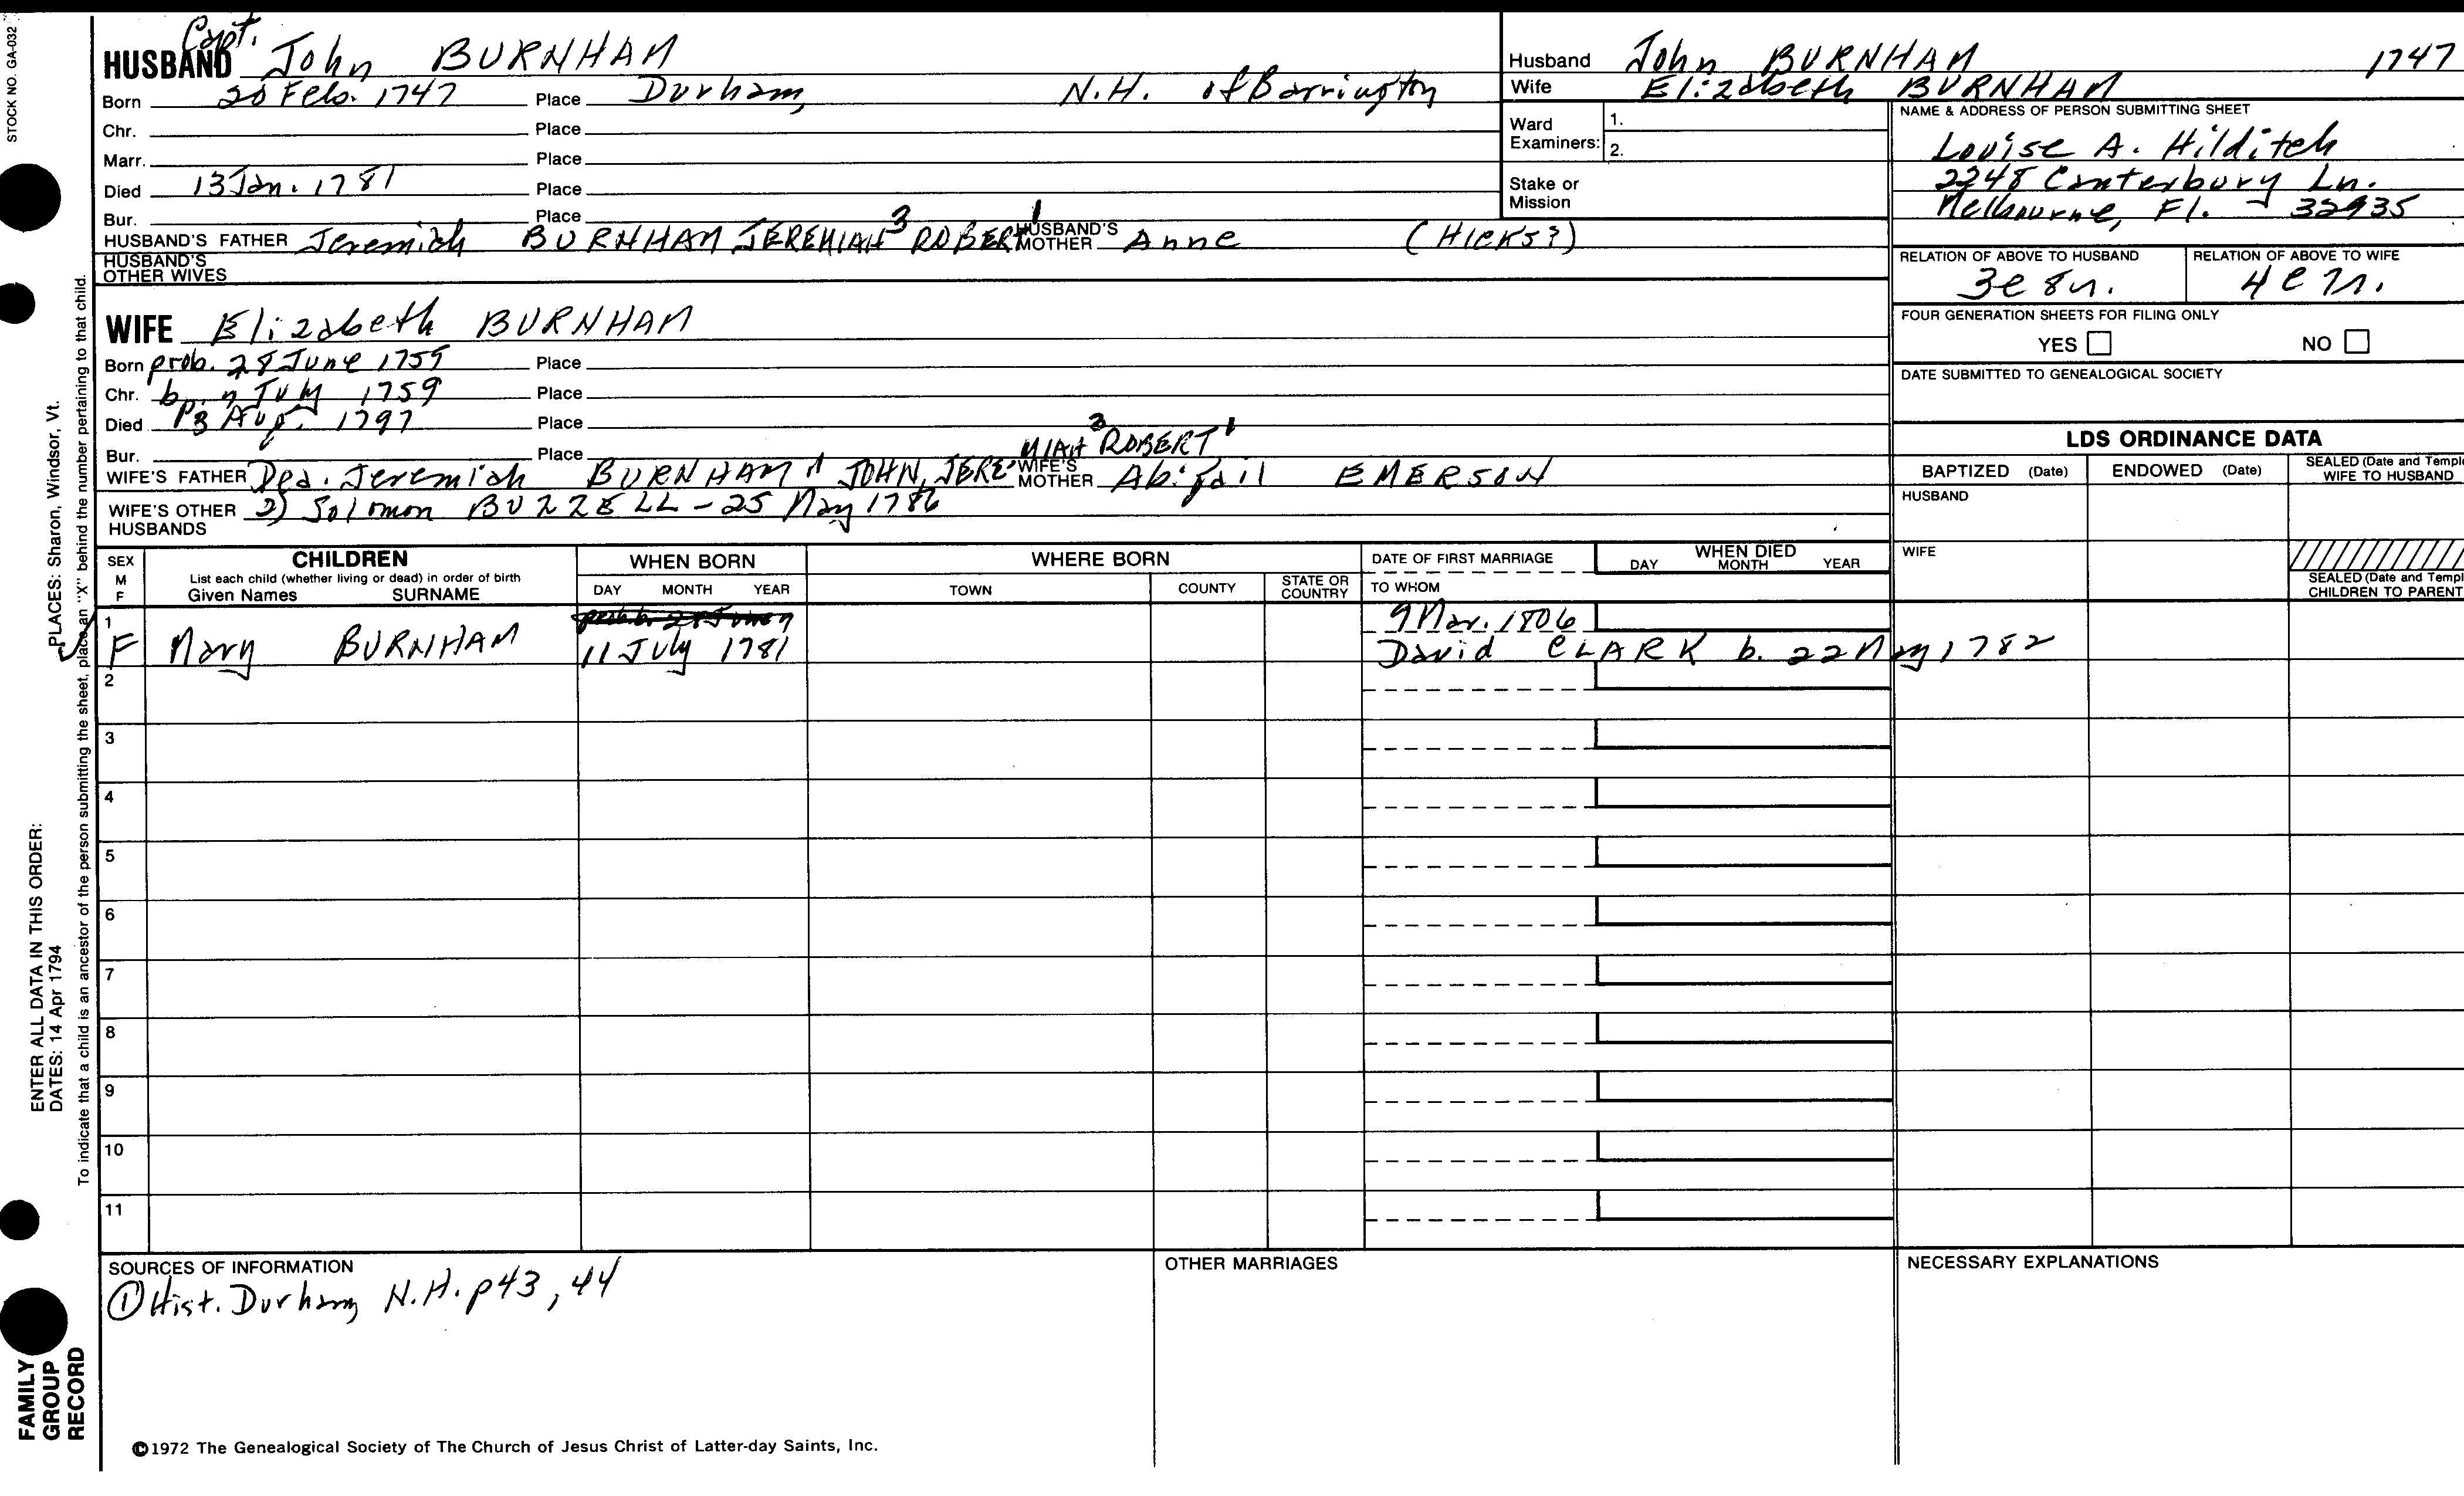 STOCK NO. GA-032
Capt.
HUSBAND John BURNHAM
Born 20 Feb. 1747 Place Durham, N.H. of Barrington
Chr. Place
Marr. Place
Died 13 Jan. 1781 Place
Bur. Place
HUSBAND'S FATHER Jeremiah BURNHAM JEREMIAH3 ROBERT1 HUSBAND'S MOTHER Anne (HICKS?)
HUSBAND'S OTHER WIVES
WIFE Elizabeth BURNHAM
Born prob. 28 June 1759 Place
Chr. bp. July 1759 Place
Died 13 Aug. 1797 Place
Bur. Place
WIFE'S FATHER Dea. Jeremiah BURNHAM4 JOHN, JEREMIAH3 ROBERT1 WIFE'S MOTHER Abigail EMERSON
WIFE'S OTHER HUSBANDS 2) Solomon BUZZELL - 25 May 1786
Husband John BURNHAM 1747
Wife Elizabeth BURNHAM
Ward Examiners: 1.
2.
Stake or Mission
NAME & ADDRESS OF PERSON SUBMITTING SHEET
Louise A. Hilditch
2248 Canterbury Ln.
Melbourne, Fl. 32935
RELATION OF ABOVE TO HUSBAND RELATION OF ABOVE TO WIFE
FOUR GENERATION SHEETS FOR FILING ONLY
YES NO
DATE SUBMITTED TO GENEALOGICAL SOCIETY
LDS ORDINANCE DATA
BAPTIZED (Date) ENDOWED (Date) SEALED (Date and Templ WIFE TO HUSBAND
HUSBAND
WIFE
SEALED (Date and Templ CHILDREN TO PARENT
SEX M F CHILDREN WHEN BORN WHERE BORN DATE OF FIRST MARRIAGE WHEN DIED
List each child (whether living or dead) in order of birth
Given Names SURNAME DAY MONTH YEAR TOWN COUNTY STATE OR COUNTRY TO WHOM DAY MONTH YEAR
1 9 Mar. 1806
F Mary BURNHAM 11 July 1781 David CLARK b. 22 May 1782
2
3
4
5
6
7
8
9
10
11
SOURCES OF INFORMATION
① Hist. Durham N.H. p43, 44
OTHER MARRIAGES
NECESSARY EXPLANATIONS
©1972 The Genealogical Society of The Church of Jesus Christ of Latter-day Saints, Inc.
ENTER ALL DATA IN THIS ORDER:
DATES: 14 Apr 1794 PLACES: Sharon, Windsor, Vt.
To indicate that a child is an ancestor of the person submitting the sheet, place an "X" behind the number pertaining to that child.
FAMILY
GROUP
RECORD